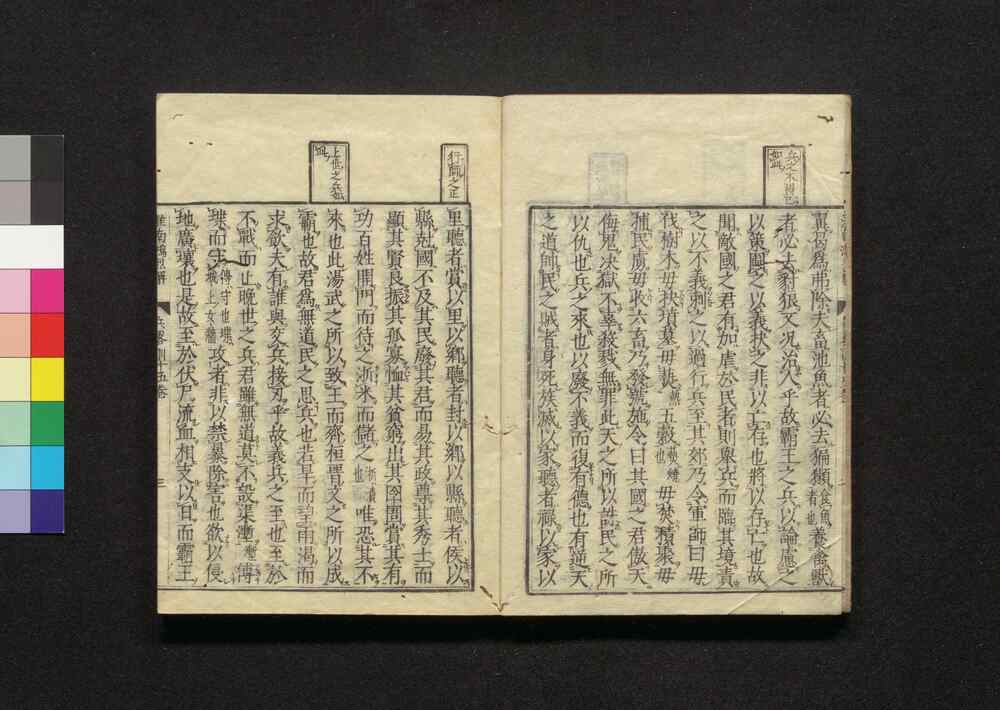 兵之不得已
如此
翼曷爲弗除夫畜池魚者必去猵獺食魚者也養禽獸
者必去豺狼又况治人乎故霸王之兵以論慮之
以策圖之以義扶之非以亡存也將以存亡也故
聞敵國之君有加虐於民者則舉兵而臨其境責
之以不義刺之以過行兵至其郊乃令軍師曰毋
伐樹木毋抉墳墓毋爇五穀爇燒也毋焚積聚毋
捕民虜毋收六畜乃發號施令曰其國之君傲天
侮鬼决獄不辜殺戮無罪此天之所以誅民之所
以仇也兵之來也以廢不義而復有德也有逆天
之道帥民之賊者身死族滅以家聽者祿以家以
行師之正
里聽者賞以里以鄉聽者封以鄉以縣聽者侯以
縣尅國不及其民廢其君而易其政尊其秀士而
顯其賢良振其孤寡恤其貧窮出其囹圄賞其有
功百姓開門而待之淅米而儲之淅漬也唯恐其不
上世之兵如
此
來也此湯武之所以致王而齊桓晋文之所以成
霸也故君爲無道民之思兵也若旱而望雨渴而
求飲夫有誰與交兵接刃乎故義兵之至也至於
不戰而止晚世之兵君雖無道莫不設渠壍傅
堞而守傅守也堞城上女牆攻者非以禁暴除害也欲以侵
地廣壤也是故至於伏尸流血相支以日而霸王
兵畧訓十五卷 三